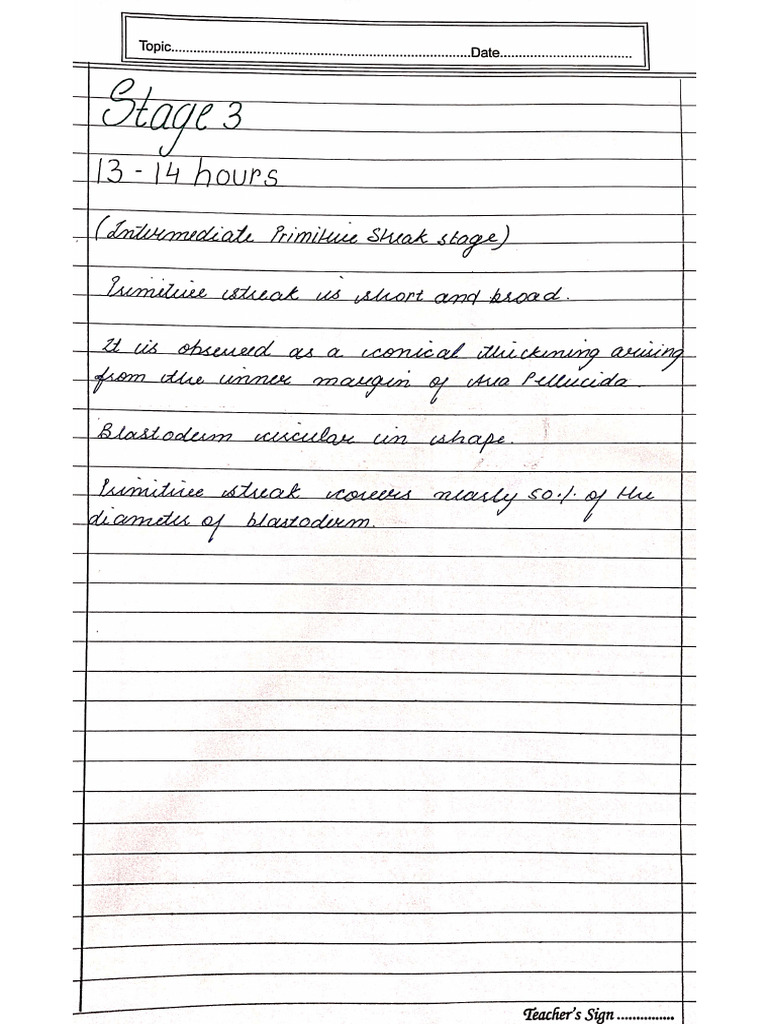 Topic................................................................................Date....................................
Stage 3
13 - 14 hours
(Intermediate Primitive Streak stage)
Primitive streak is short and broad.
It is observed as a conical thickening arising
from the inner margin of Area Pellucida.
Blastoderm circular in shape.
Primitive streak covers nearly 50% of the
diameter of blastoderm.
Teacher's Sign ...............